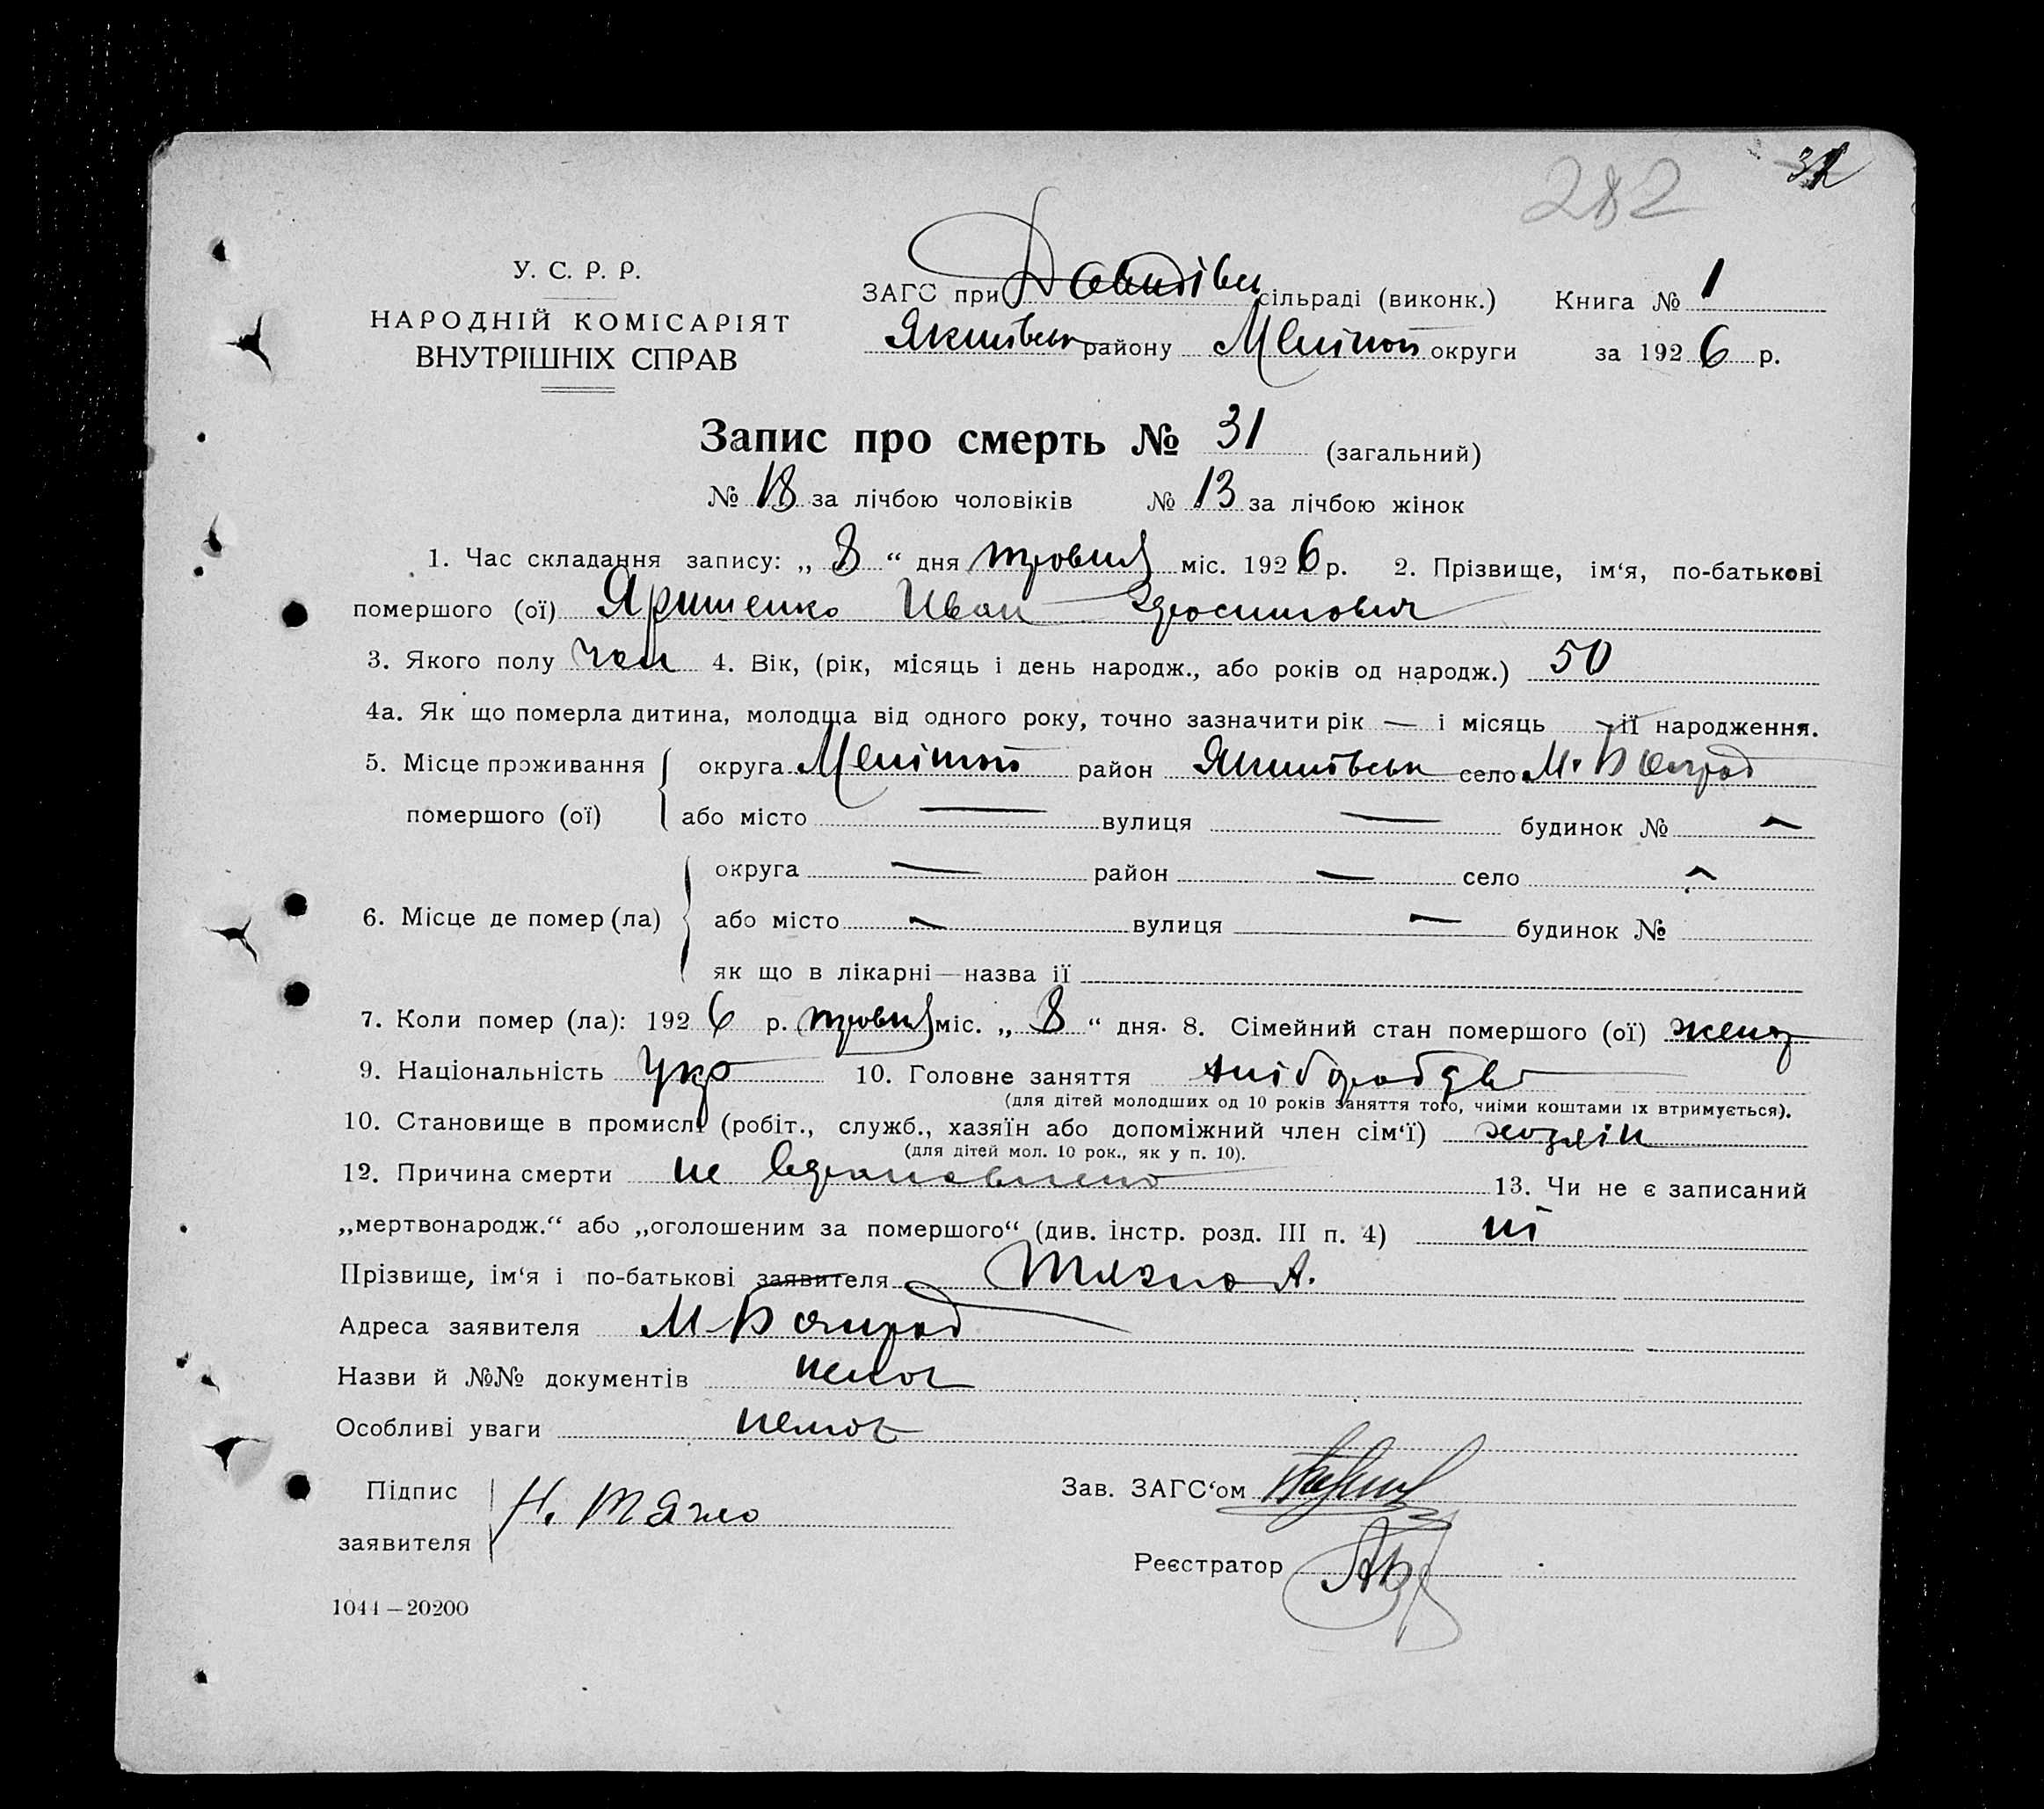 282
У. С. Р. Р.
НАРОДНІЙ КОМІСАРІЯТ
ВНУТРІШНІХ СПРАВ
ЗАГС при Давидівск сільраді (виконк.) Книга № 1
Якимівськ району Меліт округи за 1926 р.
Запис про смерть № 31 (загальний)
№ 18 за лічбою чоловіків № 13 за лічбою жінок
1. Час складання запису: „ 8 “ дня травня міс. 1926 р. 2. Прізвище, ім‘я, по-батькові
помершого (ої) Яришенко Иван
3. Якого полу чол 4. Вік, (рік, місяць і день народж., або років од народж.) 50
4а. Як що померла дитина, молодща від одного року, точно зазначити рік — і місяць — її народження.
5. Місце проживання округа Меліт район Якимівськ село М. Богград
помершого (ої) або місто — вулиця — будинок № —
округа — район — село —
6. Місце де помер (ла) або місто — вулиця — будинок №
як що в лікарні—назва її
7. Коли помер (ла): 1926 р. травня міс. „ 8 “ дня. 8. Сімейний стан помершого (ої) женат
9. Національність Укр 10. Головне заняття хліборобство
(для дітей молодших од 10 років заняття того, чиїми коштами їх втримується).
10. Становище в промислі (робіт., служб., хазяїн або допоміжний член сім‘ї) хозяїн
(для дітей мол. 10 рок., як у п. 10).
12. Причина смерти не 13. Чи не є записаний
„мертвонародж.“ або „оголошеним за помершого“ (див. інстр. розд. III п. 4) ні
Прізвище, ім‘я і по-батькові заявителя Тяжко А.
Адреса заявителя М-Богград
Назви й №№ документів немає
Особливі уваги немає
Підпис
заявителя Н. Тяжко
Зав. ЗАГС‘ом
Реєстратор
1044—20200